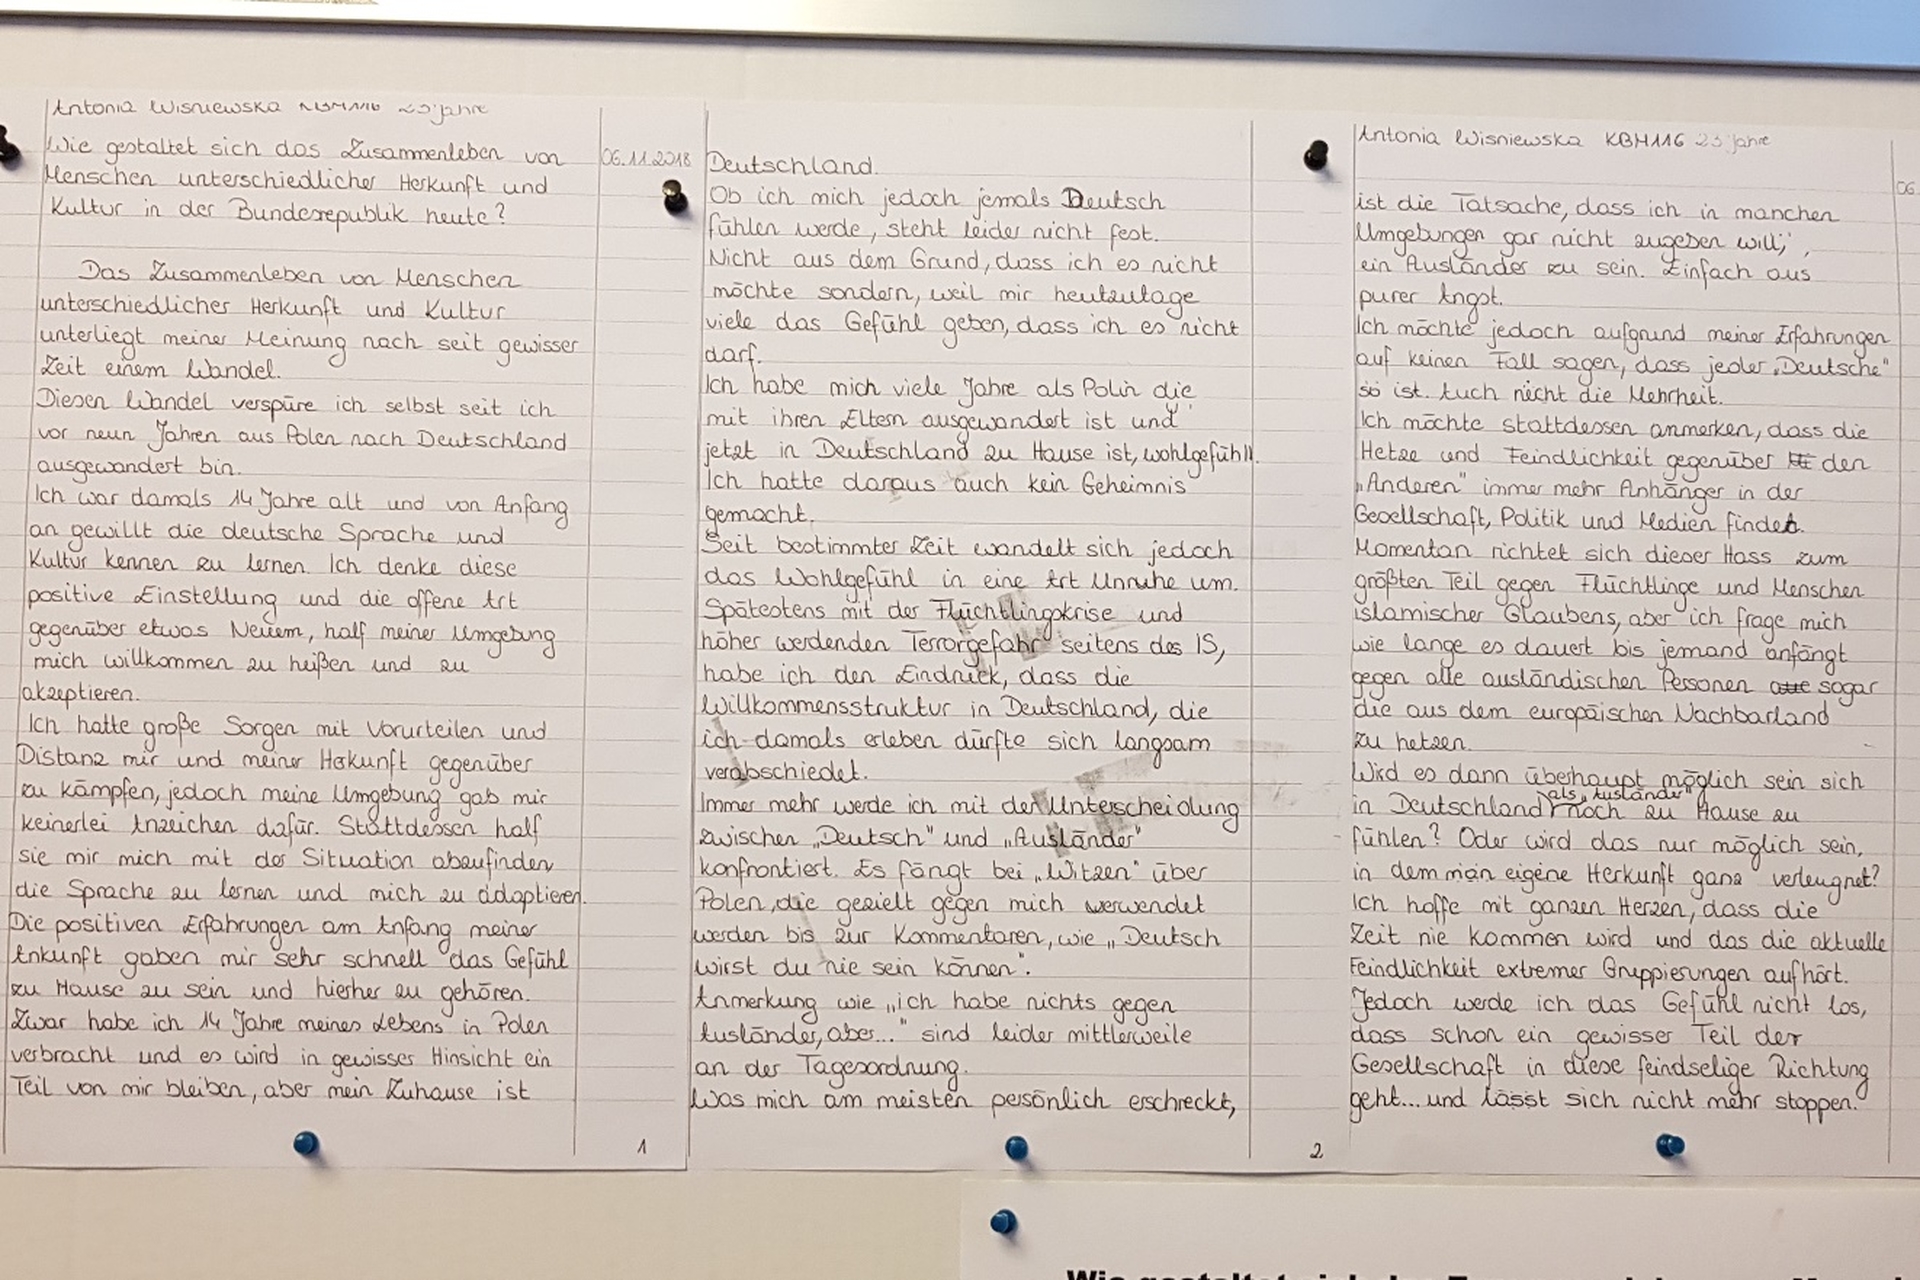 Antonia Wisniewska KBM116 23 Jahre
Wie gestaltet sich das Zusammenleben von
Menschen unterschiedlicher Herkunft und
Kultur in der Bundesrepublik heute?
Das Zusammenleben von Menschen
unterschiedlicher Herkunft und Kultur
unterliegt meiner Meinung nach seit gewisser
Zeit einem Wandel.
Diesen Wandel verspüre ich selbst seit ich
vor neun Jahren aus Polen nach Deutschland
ausgewandert bin.
Ich war damals 14 Jahre alt und von Anfang
an gewillt die deutsche Sprache und
Kultur kennen zu lernen. Ich denke diese
positive Einstellung und die offene Art
gegenüber etwas Neuem, half meiner Umgebung
mich willkommen zu heißen und zu
akzeptieren.
Ich hatte große Sorgen mit Vorurteilen und
Distanz mir und meiner Herkunft gegenüber
zu kämpfen, jedoch meine Umgebung gab mir
keinerlei Anzeichen dafür. Stattdessen half
sie mir mich mit der Situation abzufinden,
die Sprache zu lernen und mich zu adaptieren.
Die positiven Erfahrungen am Anfang meiner
Ankunft gaben mir sehr schnell das Gefühl
zu Hause zu sein und hierher zu gehören.
Zwar habe ich 14 Jahre meines Lebens in Polen
verbracht und es wird in gewisser Hinsicht ein
Teil von mir bleiben, aber mein Zuhause ist
1
06.11.2018
Deutschland.
Ob ich mich jedoch jemals Deutsch
fühlen werde, steht leider nicht fest.
Nicht aus dem Grund, dass ich es nicht
möchte sondern, weil mir heutzutage
viele das Gefühl geben, dass ich es nicht
darf.
Ich habe mich viele Jahre als Polin die
mit ihren Eltern ausgewandert ist und
jetzt in Deutschland zu Hause ist, wohlgefühlt.
Ich hatte daraus auch kein Geheimnis
gemacht.
Seit bestimmter Zeit wandelt sich jedoch
das Wohlgefühl in eine Art Unruhe um.
Spätestens mit der Flüchtlingskrise und
höher werdenden Terrorgefahr seitens des IS,
habe ich den Eindruck, dass die
Willkommensstruktur in Deutschland, die
ich damals erleben dürfte sich langsam
verabschiedet.
Immer mehr werde ich mit der Unterscheidung
zwischen „Deutsch" und „Ausländer"
konfrontiert. Es fängt bei „Witzen" über
Polen, die gezielt gegen mich verwendet
werden bis zur Kommentaren, wie „Deutsch
wirst du nie sein können".
Anmerkung wie „ich habe nichts gegen
Ausländer, aber..." sind leider mittlerweile
an der Tagesordnung.
Was mich am meisten persönlich erschreckt,
2
Antonia Wisniewska KBM116 23 Jahre
06.
ist die Tatsache, dass ich in manchen
Umgebungen gar nicht zugeben will,
ein Ausländer zu sein. Einfach aus
purer Angst.
Ich möchte jedoch aufgrund meiner Erfahrungen
auf keinen Fall sagen, dass jeder „Deutsche"
so ist. Auch nicht die Mehrheit.
Ich möchte stattdessen anmerken, dass die
Hetze und Feindlichkeit gegenüber den
„Anderen" immer mehr Anhänger in der
Gesellschaft, Politik und Medien findet.
Momentan richtet sich dieser Hass zum
größten Teil gegen Flüchtlinge und Menschen
islamischer Glaubens, aber ich frage mich
wie lange es dauert bis jemand anfängt
gegen alle ausländischen Personen sogar
die aus dem europäischen Nachbarland
zu hetzen.
Wird es dann überhaupt möglich sein sich
in Deutschland als „Ausländer" noch zu Hause zu
fühlen? Oder wird das nur möglich sein,
in dem man eigene Herkunft ganz verleugnet?
Ich hoffe mit ganzen Herzen, dass die
Zeit nie kommen wird und das die aktuelle
Feindlichkeit extremer Gruppierungen aufhört.
Jedoch werde ich das Gefühl nicht los,
dass schon ein gewisser Teil der
Gesellschaft in diese feindselige Richtung
geht... und lässt sich nicht mehr stoppen.